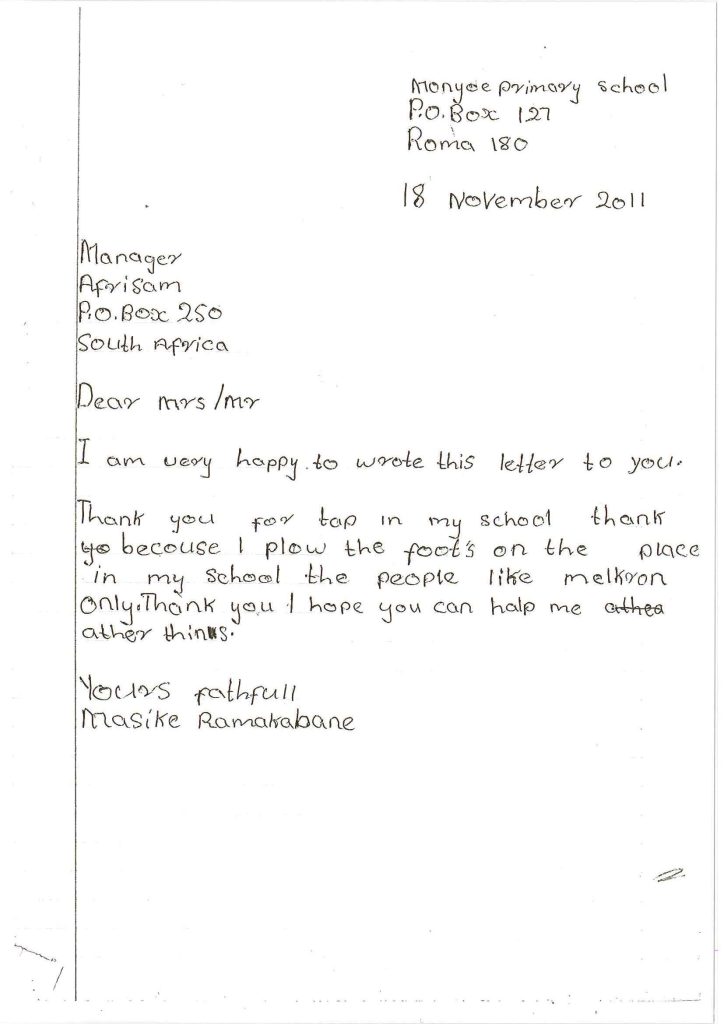 Monyoe primary school
P.O. Box 127
Roma 180
18 November 2011
Manager
Afrisam
P.O. Box 250
South Africa
Dear mrs/mr
I am very happy to wrote this letter to you.
Thank you for tap in my school thank
yo becouse I plow the foot's on the place
in my school the people like melkron
only. Thank you I hope you can halp me athea
ather thinks.
Yours fathfull
Masike Ramakabane